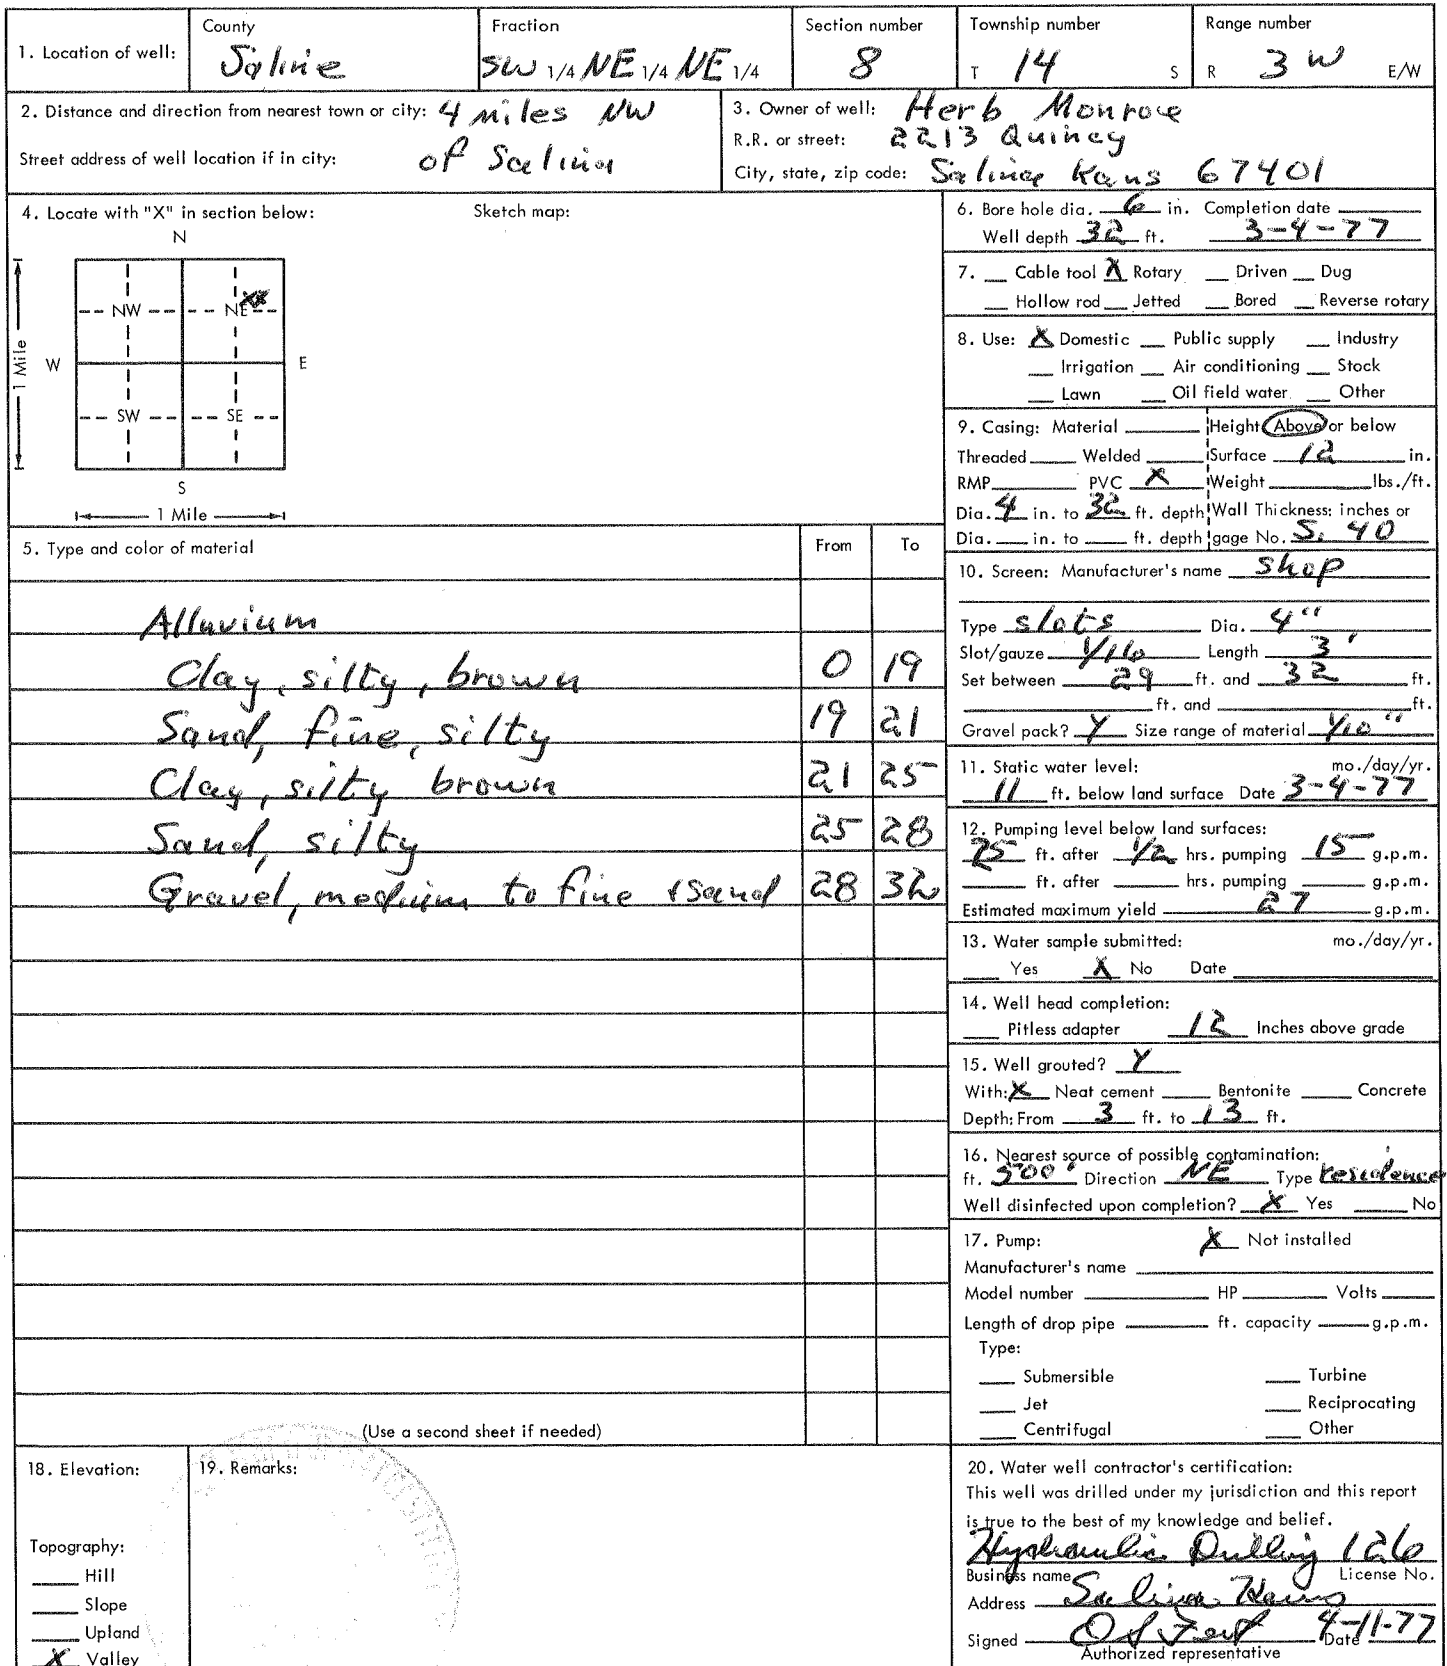 1. Location of well: County Saline Fraction SW 1/4 NE 1/4 NE 1/4 Section number 8 Township number T 14 S Range number R 3 W E/W
2. Distance and direction from nearest town or city: 4 miles NW
of Salina
Street address of well location if in city:
3. Owner of well: Herb Monroe
R.R. or street: 2213 Quincy
City, state, zip code: Salina Kans 67401
4. Locate with "X" in section below: Sketch map:
N
NW NE XX
W E
SW SE
S
1 Mile
1 Mile
5. Type and color of material From To
Alluvium
Clay, silty, brown 0 19
Sand, fine, silty 19 21
Clay, silty brown 21 25
Sand, silty 25 28
Gravel, medium to fine + sand 28 32
(Use a second sheet if needed)
6. Bore hole dia. 6 in. Completion date
Well depth 32 ft. 3-4-77
7. __ Cable tool X Rotary __ Driven __ Dug
__ Hollow rod __ Jetted __ Bored __ Reverse rotary
8. Use: X Domestic __ Public supply __ Industry
__ Irrigation __ Air conditioning __ Stock
__ Lawn __ Oil field water __ Other
9. Casing: Material ____ Height Above or below
Threaded ____ Welded ____ Surface 12 in.
RMP ____ PVC X Weight ____ lbs./ft.
Dia. 4 in. to 32 ft. depth Wall Thickness: inches or
Dia. ____ in. to ____ ft. depth gage No. S. 40
10. Screen: Manufacturer's name shop
Type slots Dia. 4"
Slot/gauze 1/16 Length 3'
Set between 29 ft. and 32 ft.
____ ft. and ____ ft.
Gravel pack? Y Size range of material 1/10"
11. Static water level: mo./day/yr.
11 ft. below land surface Date 3-4-77
12. Pumping level below land surfaces:
25 ft. after 1/2 hrs. pumping 15 g.p.m.
____ ft. after ____ hrs. pumping ____ g.p.m.
Estimated maximum yield 27 g.p.m.
13. Water sample submitted: mo./day/yr.
__ Yes X No Date ____
14. Well head completion:
__ Pitless adapter 12 Inches above grade
15. Well grouted? Y
With: X Neat cement ____ Bentonite ____ Concrete
Depth: From 3 ft. to 13 ft.
16. Nearest source of possible contamination:
ft. 500' Direction NE Type residence
Well disinfected upon completion? X Yes ____ No
17. Pump: X Not installed
Manufacturer's name ____
Model number ____ HP ____ Volts ____
Length of drop pipe ____ ft. capacity ____ g.p.m.
Type:
__ Submersible __ Turbine
__ Jet __ Reciprocating
__ Centrifugal __ Other
18. Elevation:
Topography:
__ Hill
__ Slope
__ Upland
X Valley
19. Remarks:
20. Water well contractor's certification:
This well was drilled under my jurisdiction and this report
is true to the best of my knowledge and belief.
Hydraulic Drilling 126
Business name License No.
Address Salina Kans
Signed Date 4-11-77
Authorized representative